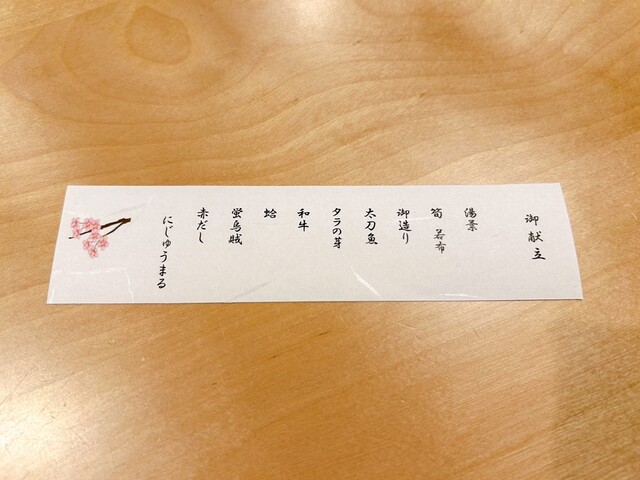 御献立
湯葉
筍 若布
御造り
太刀魚
タラの芽
和牛
蛤
蛍烏賊
赤だし
にじゅうまる